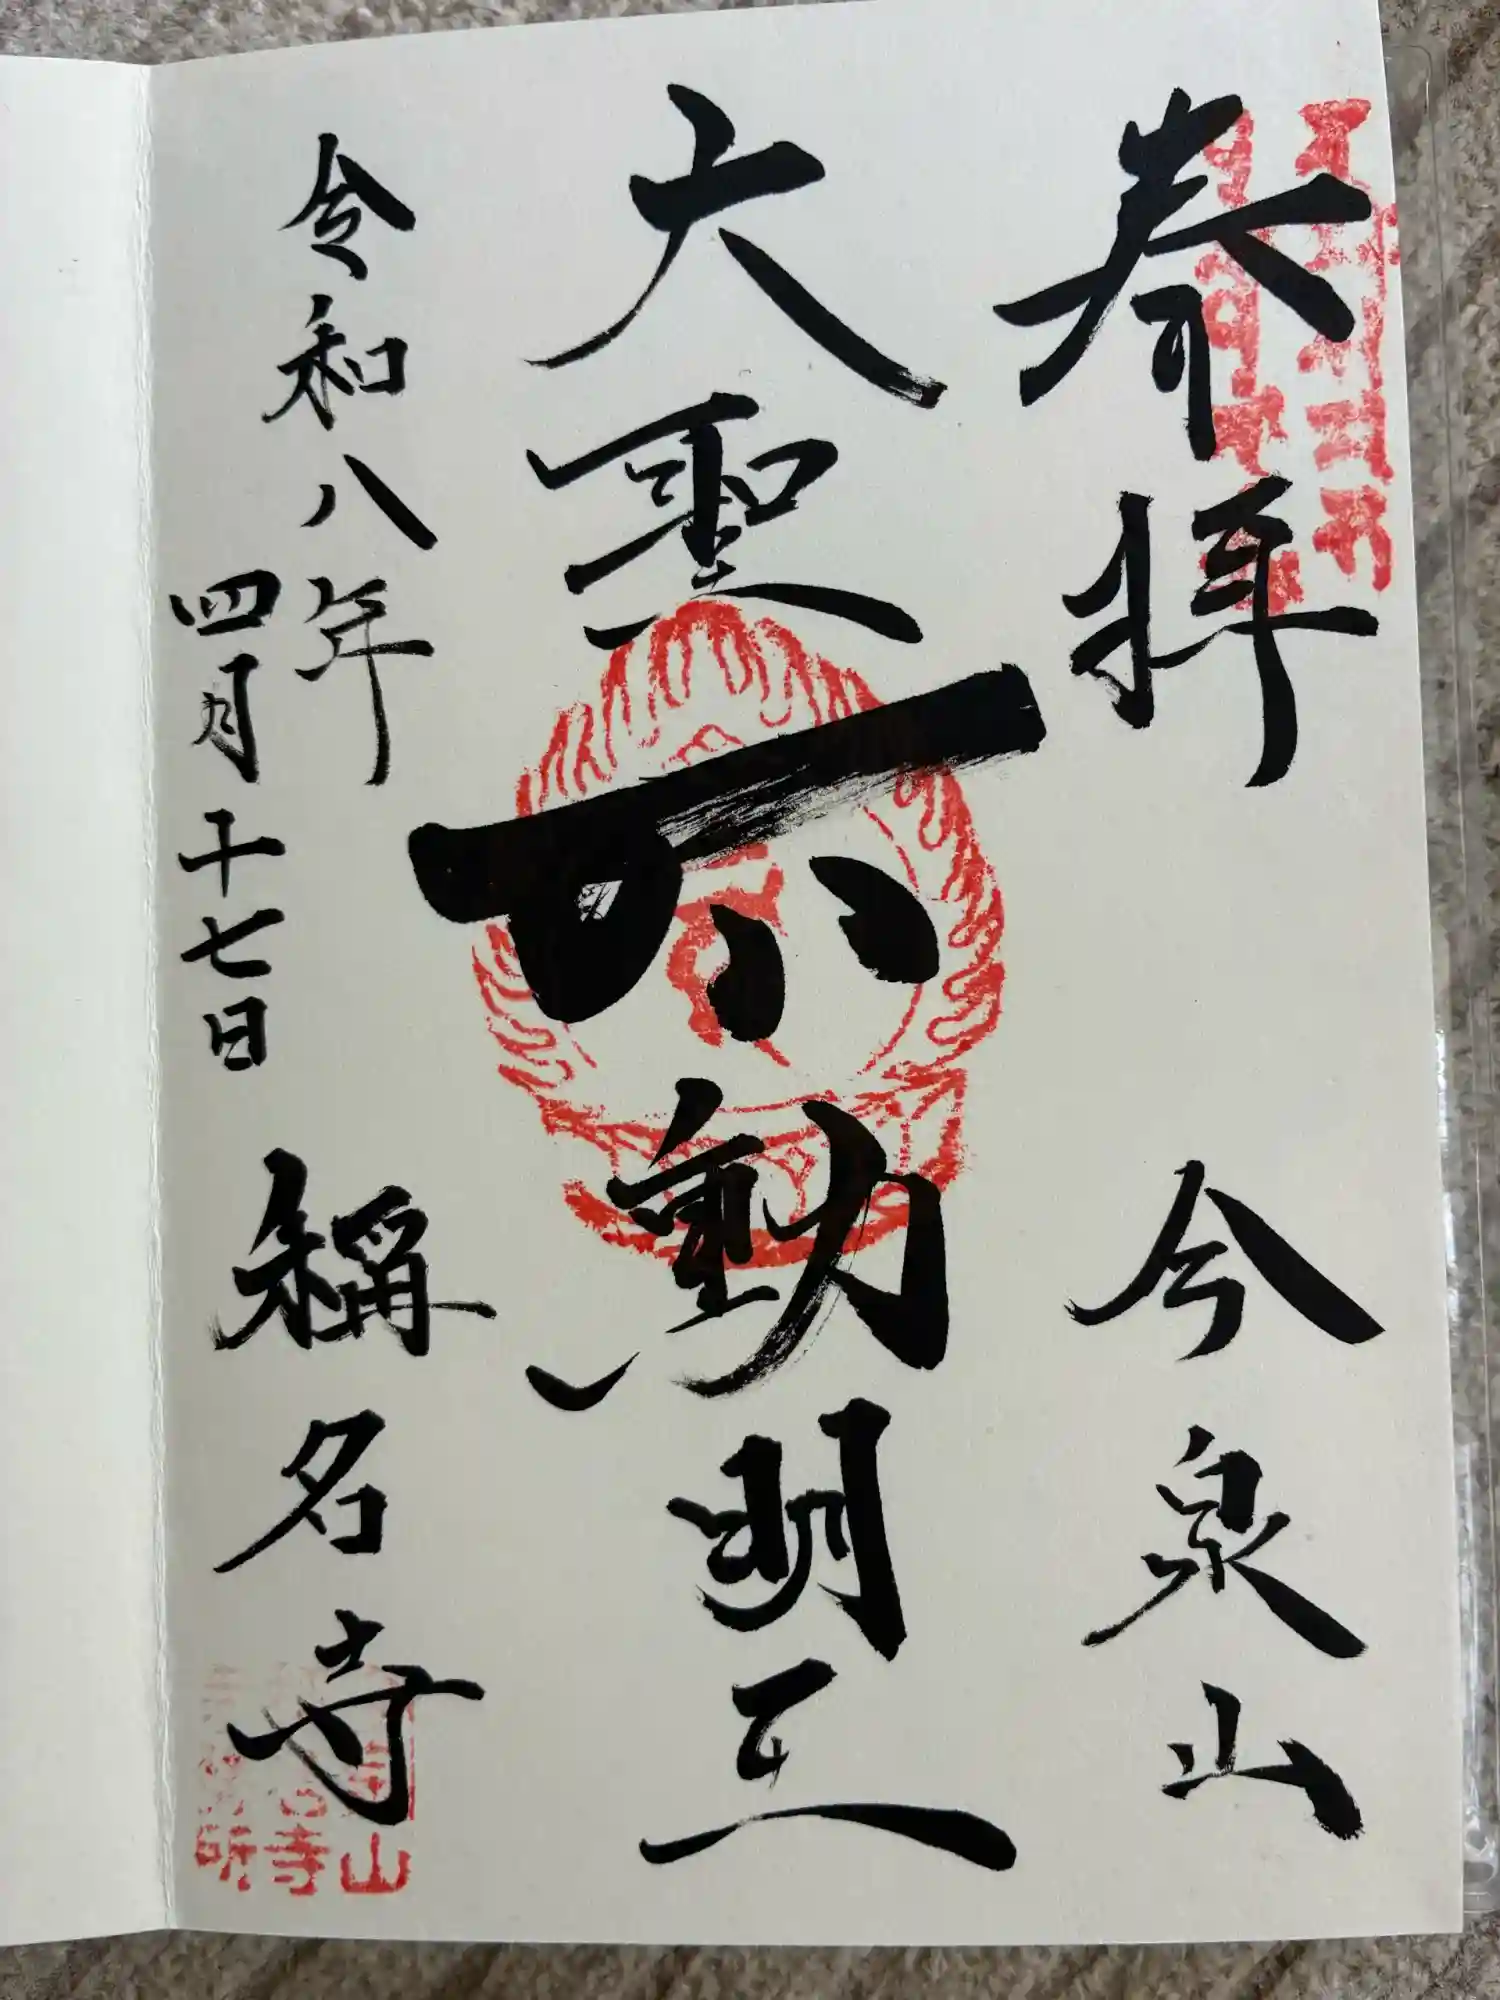 奉拝 今泉山
大聖不動明王
令和八年
四月十七日
稱名寺